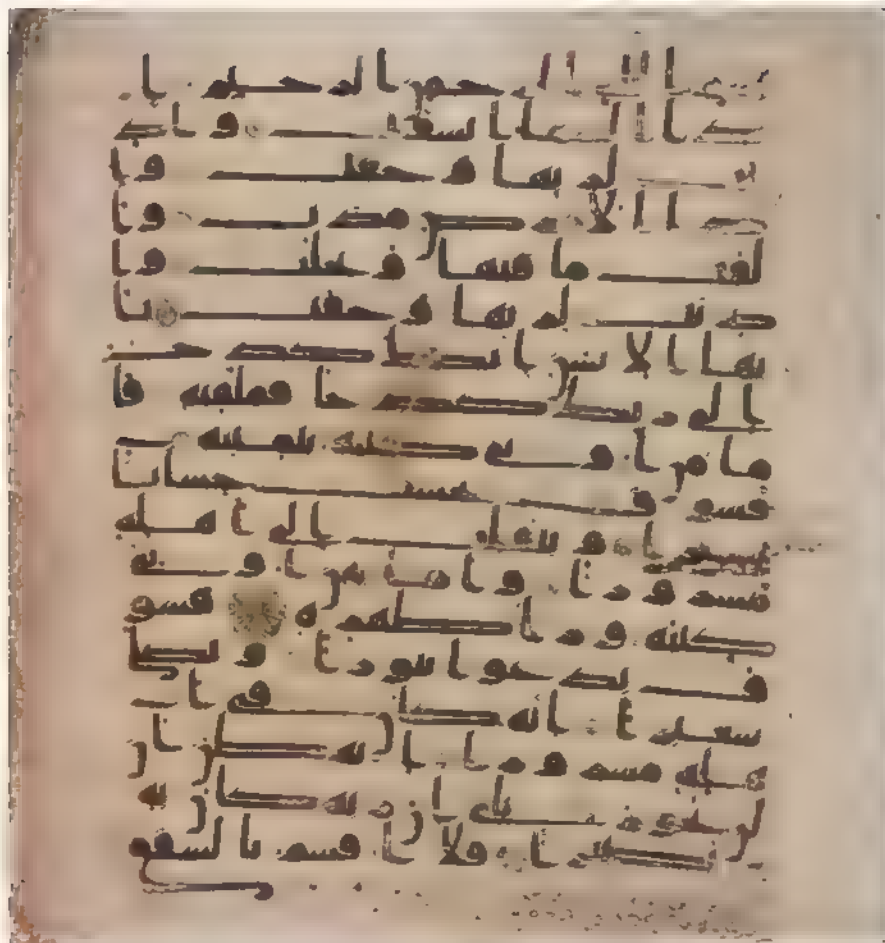 بسم الله الرحمن الرحيم ا
ذا السما انشقت واذ
نت لربها وحقت وا
ذا الارض مدت وا
لقت ما فيها وتخلت وا
ذنت لربها وحقت يا
يها الانسن انك كدح
الى ربك كدحا فملقيه فا
ما من اوتي كتبه بيمينه
فسوف يحسب حسابا
يسيرا وينقلب الى اهله
مسرورا واما من اوتي
كتبه ورا ظهره فسو
ف يدعوا ثبورا ويصلى
سعيرا انه كان في ا
هله مسرورا انه ظن ان
لن يحور بلى ان ربه كان به
بصيرا فلا اقسم بالشفق